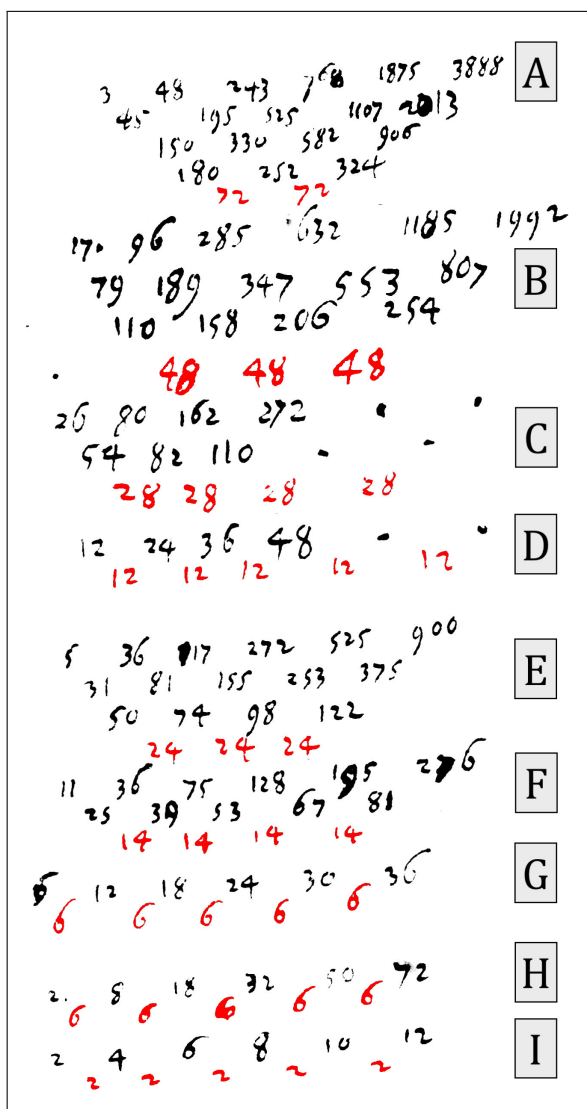 3 48 243 768 1875 3888 A
45 195 525 1107 2013
150 330 582 906
180 252 324
72 72
17. 96 285 632 1185 1992 B
79 189 347 553 807
110 158 206 254
48 48 48
26 80 162 272 C
54 82 110
28 28 28 28
12 24 36 48 D
12 12 12 12 12
5 36 117 272 525 900 E
31 81 155 253 375
50 74 98 122
24 24 24
11 36 75 128 195 276 F
25 39 53 67 81
14 14 14 14
6 12 18 24 30 36 G
6 6 6 6 6
2. 8 18 32 50 72 H
6 6 6 6 6
2 4 6 8 10 12 I
2 2 2 2 2